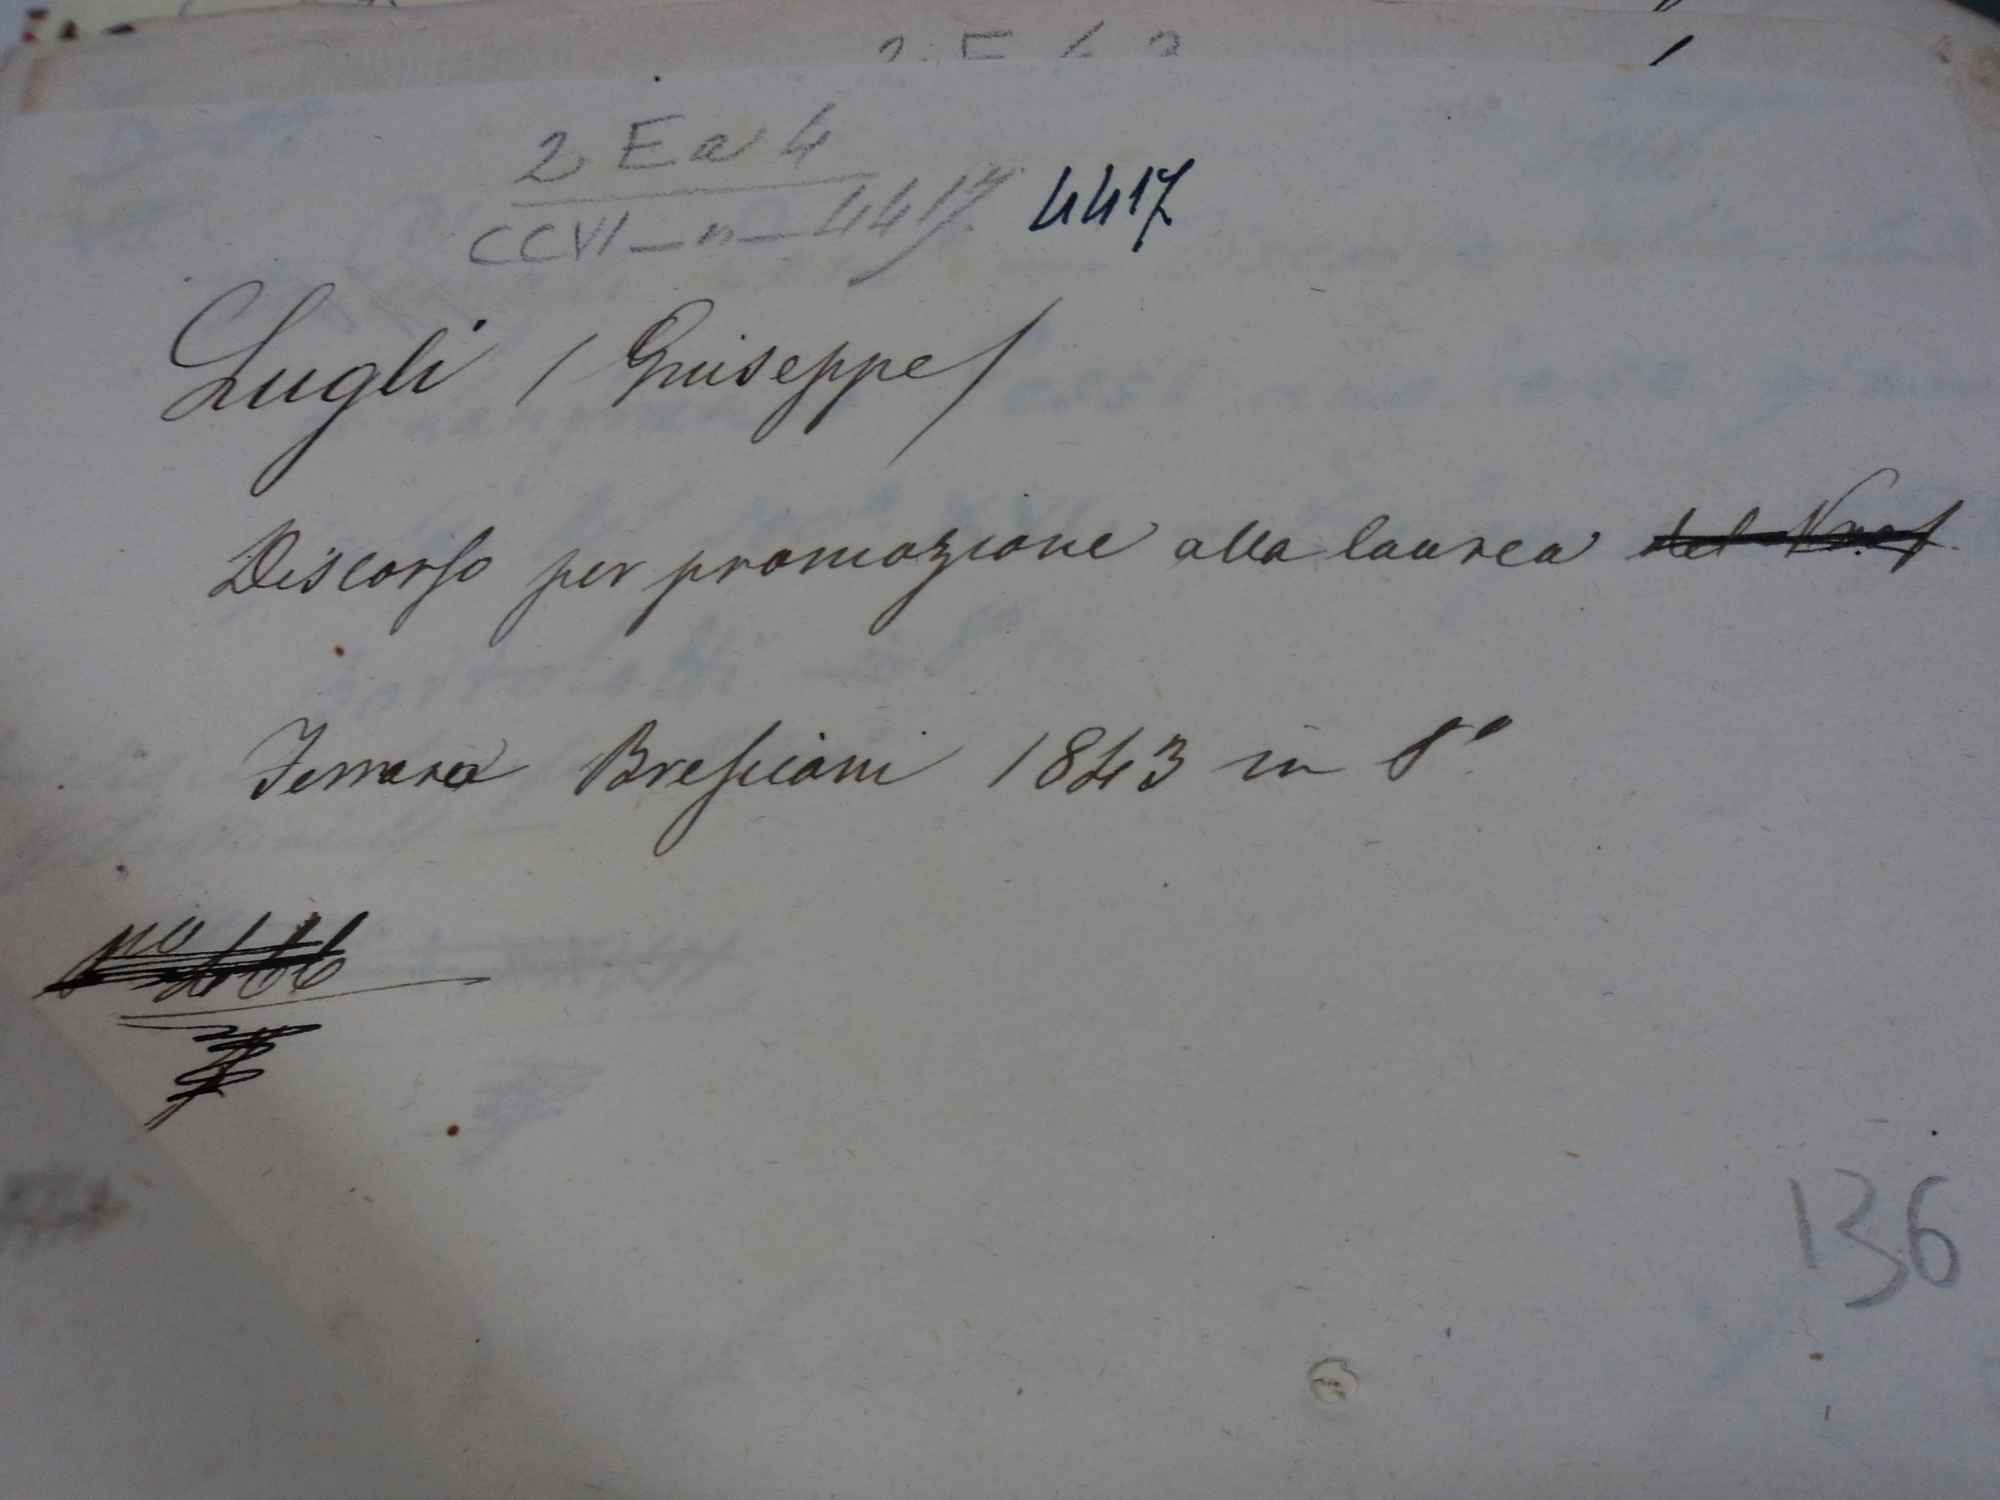 2 Ea 4
CCVI - n - 4417 4417
Lugli / Giuseppe /
Discorso per promozione alla laurea del
Ferrara Bresciani 1843 in 8°
136